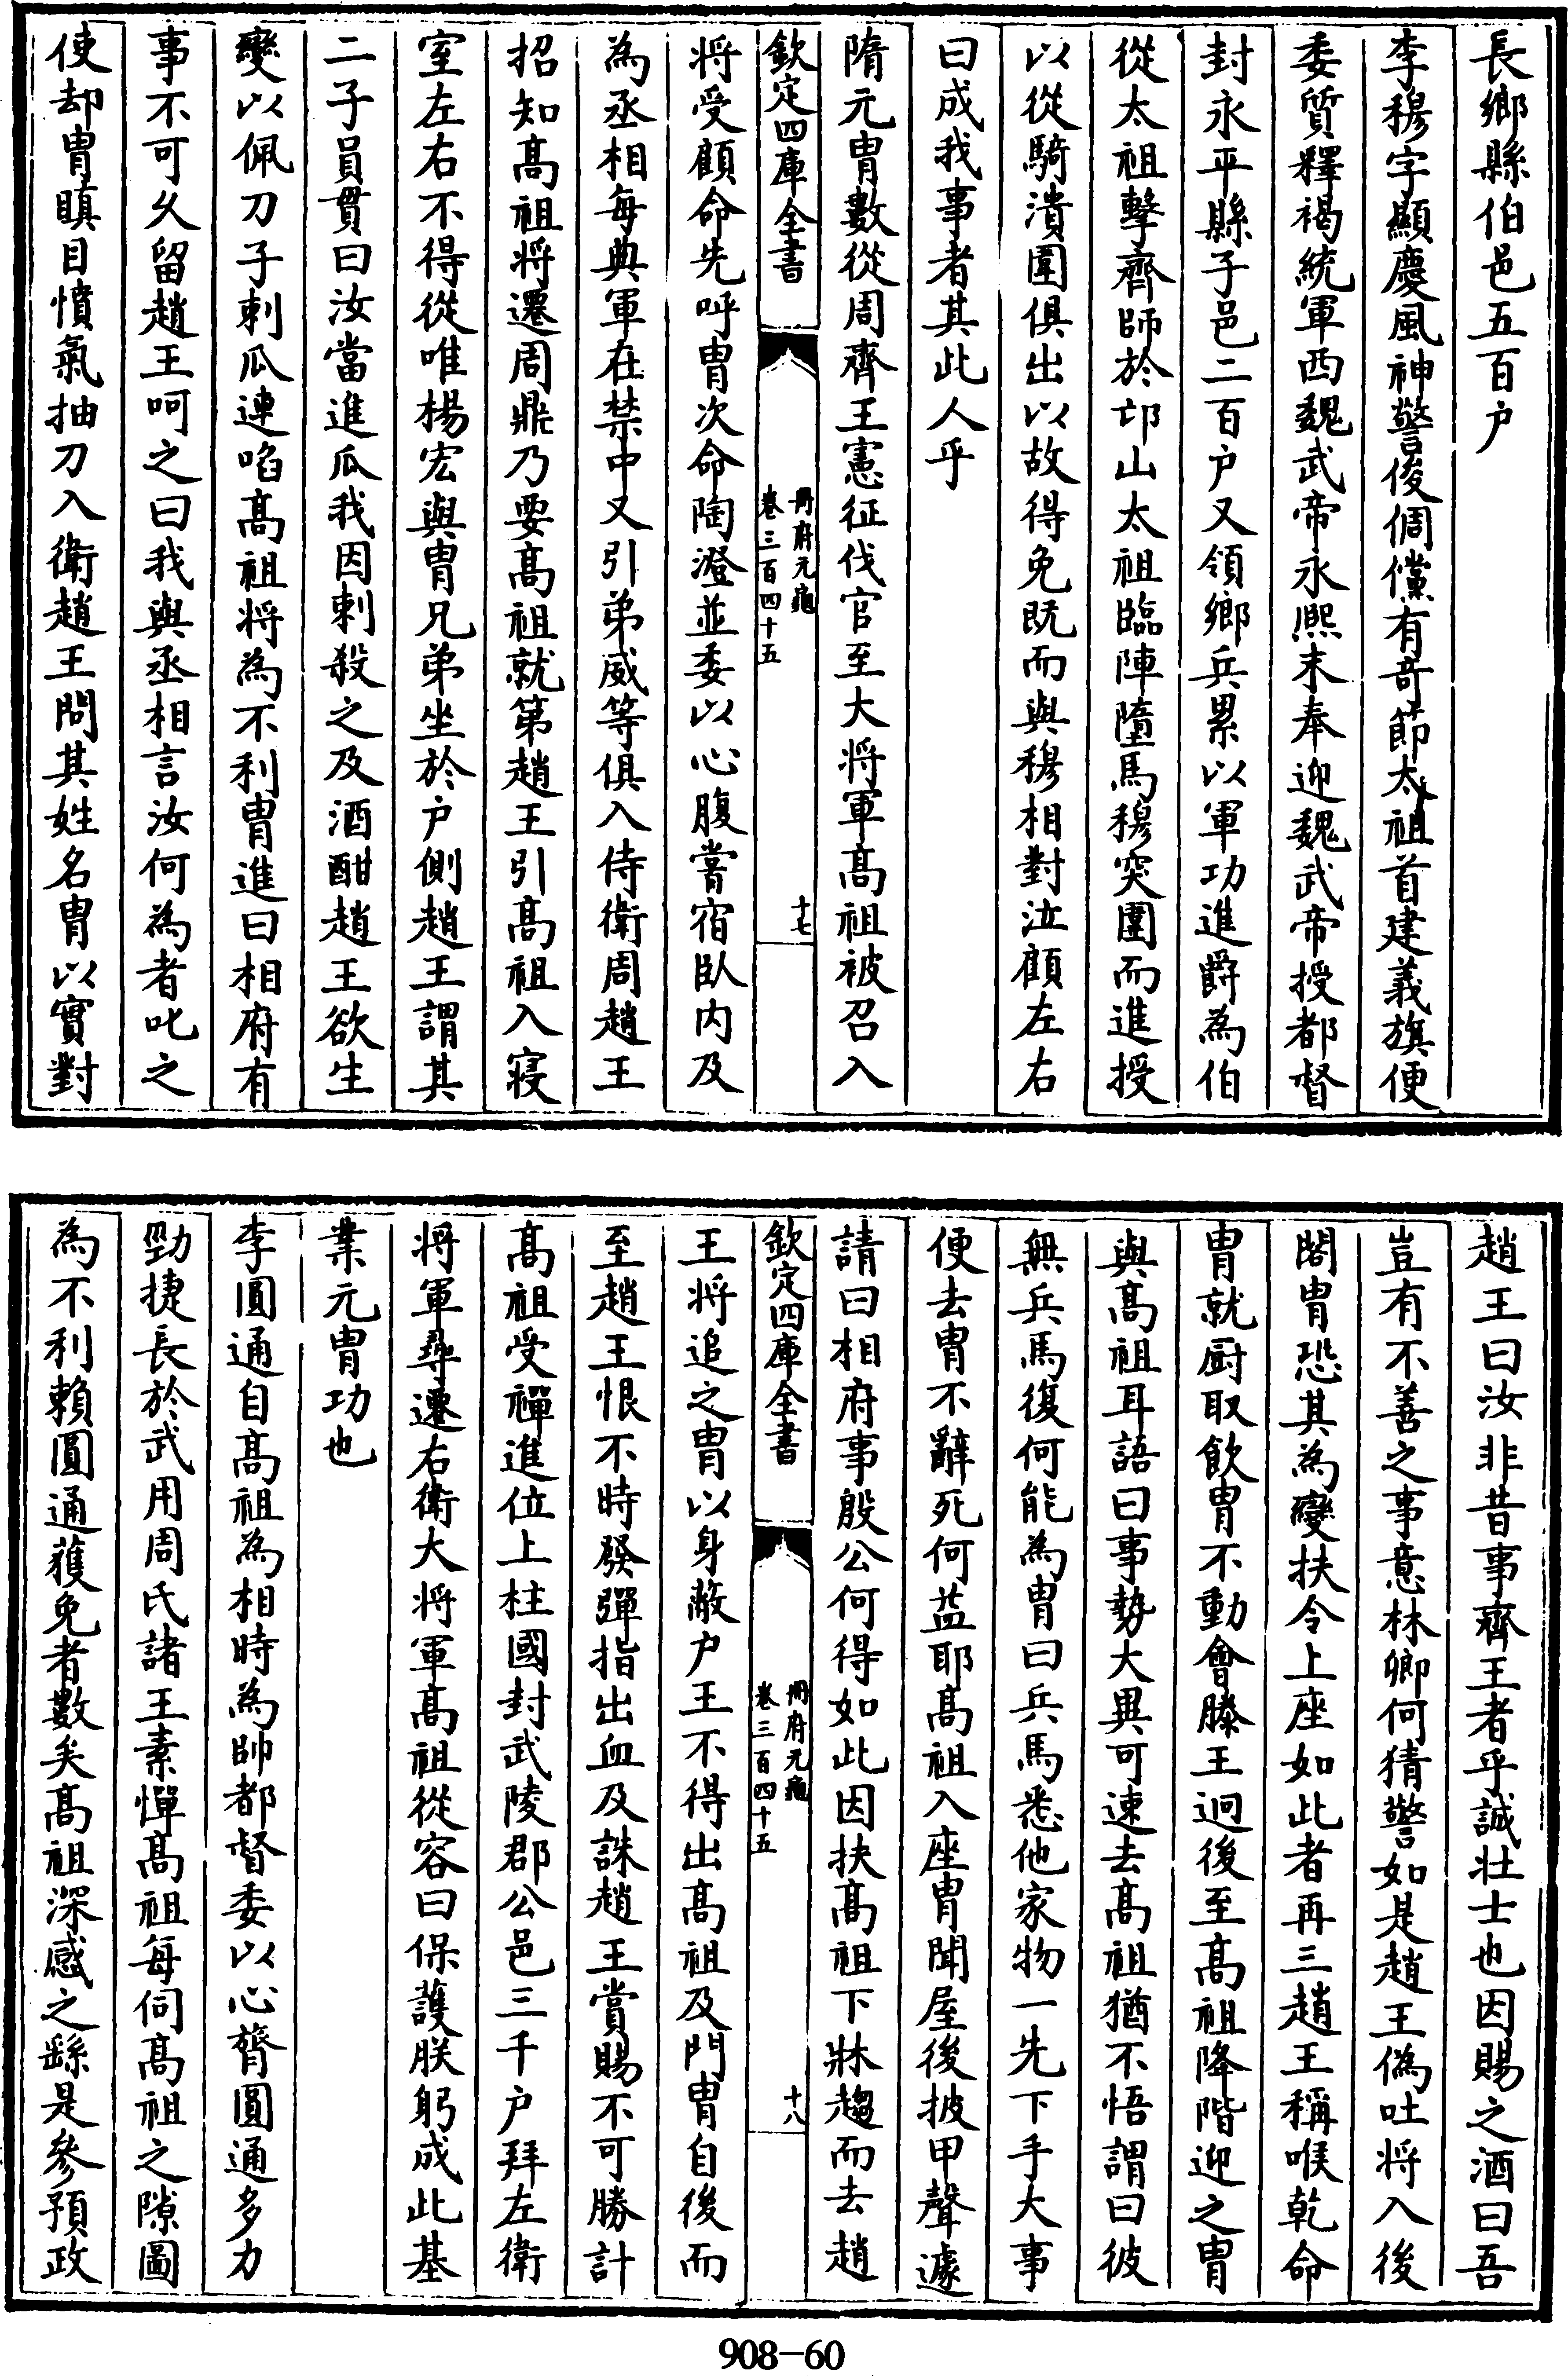 長鄉縣伯邑五百户
李穆字顯慶風神警俊倜儻有竒節太祖首建義旗便
委質釋褐統軍西魏武帝永熙末奉迎魏武帝授都督
封永平縣子邑二百户又領鄉兵累以軍功進爵為伯
從太祖擊齊師於邙山太祖臨陣墮馬穆突圍而進授
以從騎潰圍俱出以故得免既而與穆相對泣顧左右
曰成我事者其此人乎
隋元胄數從周齊王憲征伐官至大将軍髙祖被召入
欽定四庫全書
冊府元龜
卷三百四十五
十七
将受顧命先呼胄次命陶澄並委以心腹嘗宿臥内及
為丞相每典軍在禁中又引弟威等俱入侍衛周趙王
招知髙祖将遷周鼎乃要髙祖就第趙王引髙祖入寝
室左右不得從唯楊宏與胄兄弟坐於户側趙王謂其
二子員貫曰汝當進瓜我因刺殺之及酒酣趙王欲生
變以佩刀子刺瓜連啗髙祖将為不利胄進曰相府有
事不可久留趙王呵之曰我與丞相言汝何為者叱之
使却胄瞋目憤氣抽刀入衛趙王問其姓名胄以實對
趙王曰汝非昔事齊王者乎誠壮士也因賜之酒曰吾
豈有不善之事意林卿何猜警如是趙王偽吐将入後
閤胄恐其為變扶令上座如此者再三趙王稱喉乾命
胄就厨取飲胄不動會滕王逈後至髙祖降階迎之胄
與髙祖耳語曰事勢大異可速去髙祖猶不悟謂曰彼
無兵馬復何能為胄曰兵馬悉他家物一先下手大事
便去胄不辭死何益耶髙祖入座胄聞屋後披甲聲遽
請曰相府事殷公何得如此因扶髙祖下牀趨而去趙
欽定四庫全書
冊府元龜
卷三百四十五
十八
王将追之胄以身蔽户王不得出髙祖及門胄自後而
至趙王恨不時發彈指出血及誅趙王賞賜不可勝計
髙祖受禪進位上柱國封武陵郡公邑三千户拜左衛
将軍尋遷右衛大将軍髙祖從容曰保護朕躬成此基
業元胄功也
李圓通自髙祖為相時為帥都督委以心膂圓通多力
勁捷長於武用周氏諸王素憚髙祖每伺髙祖之隙圖
為不利賴圓通獲免者數矣髙祖深感之繇是參預政
908-60